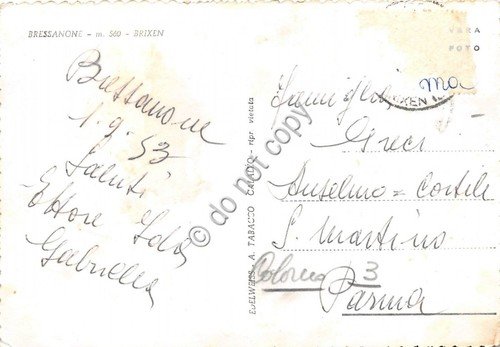 BRESSANONE - m. 560 - BRIXEN
VERA
FOTO
Bressanone
1.9.53
Saluti
Ettore Ida
Gabriella
EDELWEISS A. TABACCO CALALZO - ripr. vietata
Famiglia
Greci
Anselmo = Cortile
S. Martino
Colorno 3
Parma
ma
BRIXEN
© do not copy